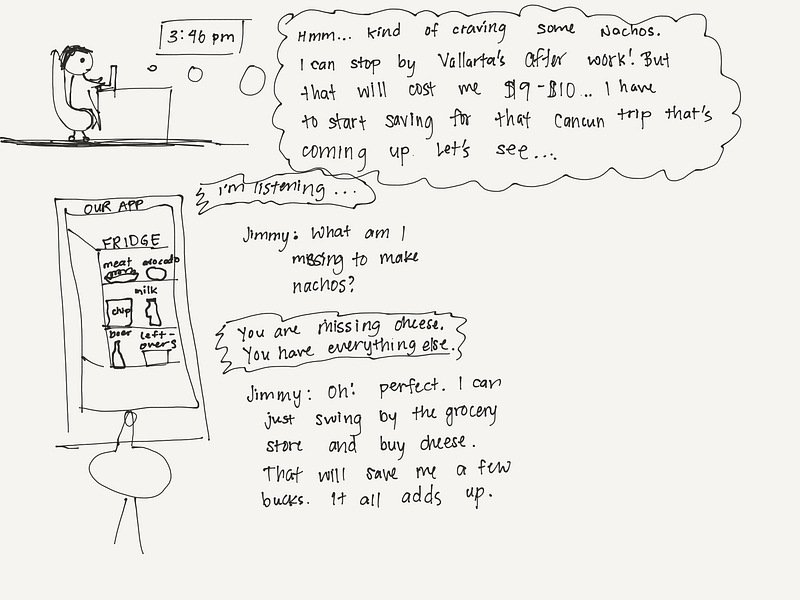 3:46 pm
Hmm... kind of craving some Nachos.
I can stop by Vallarta's after work! But
that will cost me $9-$10... I have
to start saving for that Cancun trip that's
coming up. Let's see...
I'm listening ...
OUR APP
FRIDGE
meat avocado
milk
chip
beer left-
overs
Jimmy: What am I
missing to make
nachos?
You are missing cheese.
You have everything else.
Jimmy: Oh! perfect. I can
just swing by the grocery
store and buy cheese.
That will save me a few
bucks. It all adds up.